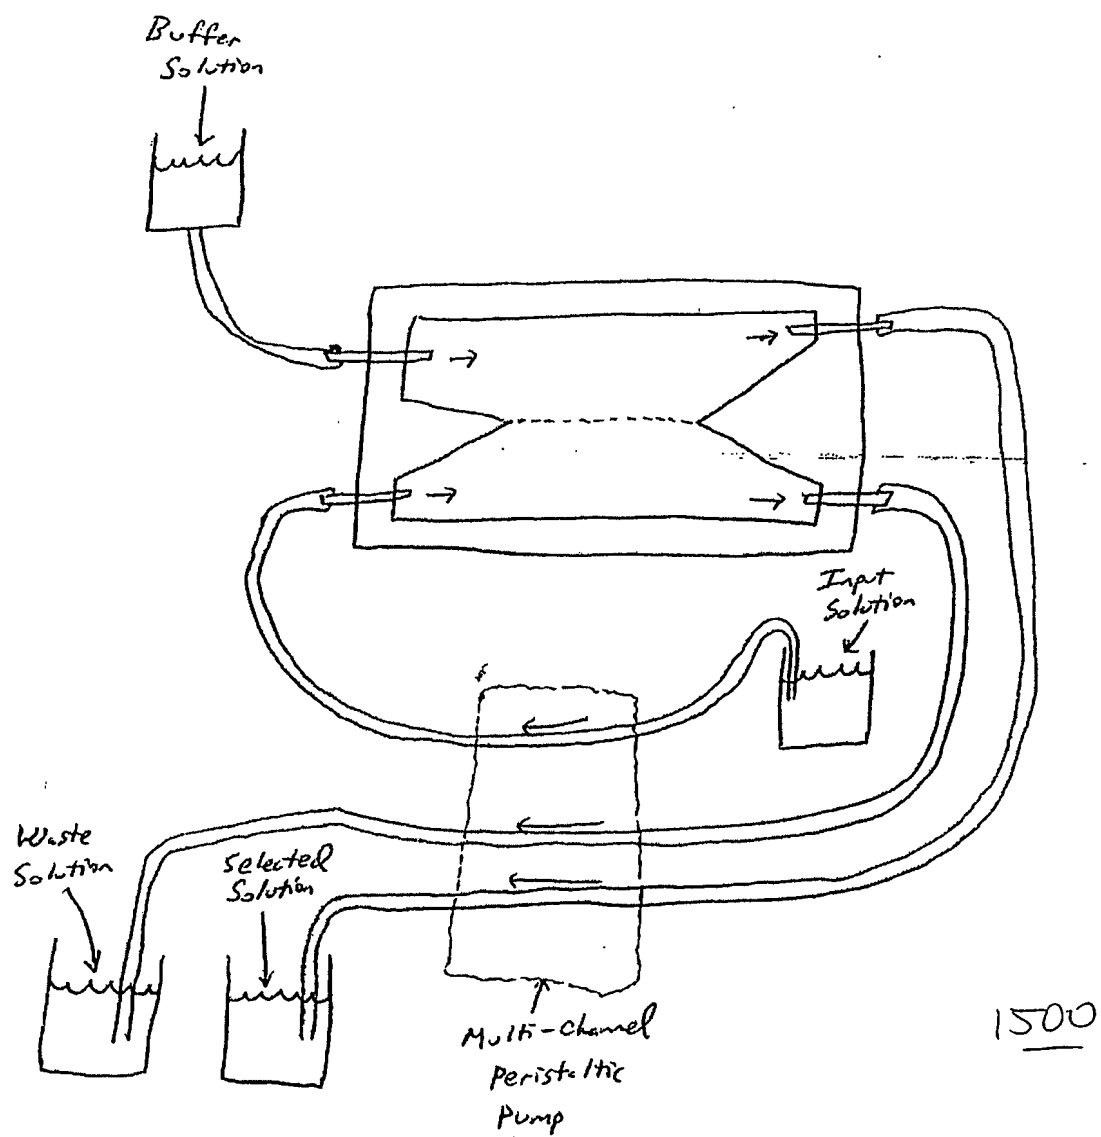 Buffer
Solution
Input
Solution
Waste
Solution
Selected
Solution
Multi-Channel
Peristaltic
Pump
1500